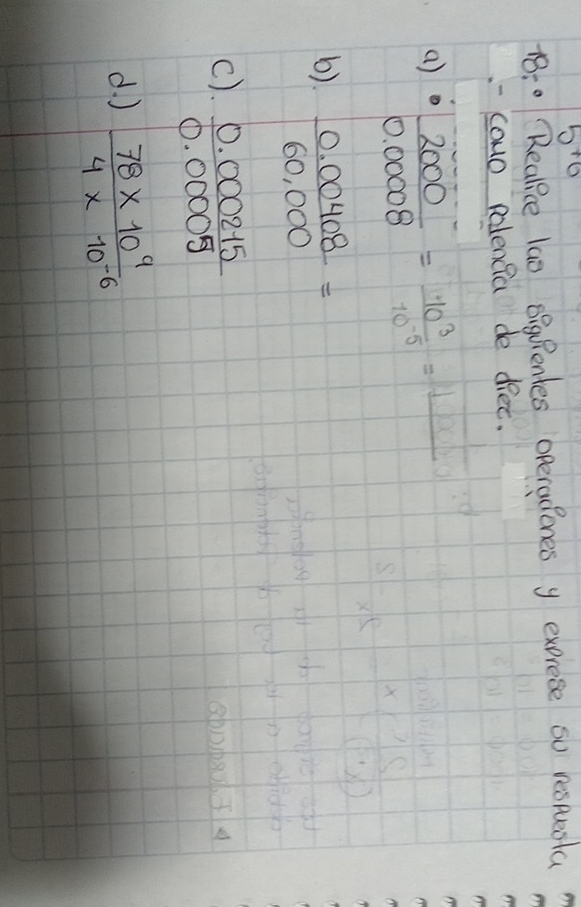 5+6
18.- Realice las siguientes operaciones y exprese su respuesta
.- como potencia de diez.
a) • 2000 / 0.00008 = 10³ / 10⁻⁵ =
b). 0.00408 / 60,000 =
c). 0.000215 / 0.00005
d.) 78 x 10⁹ / 4 x 10⁻⁶